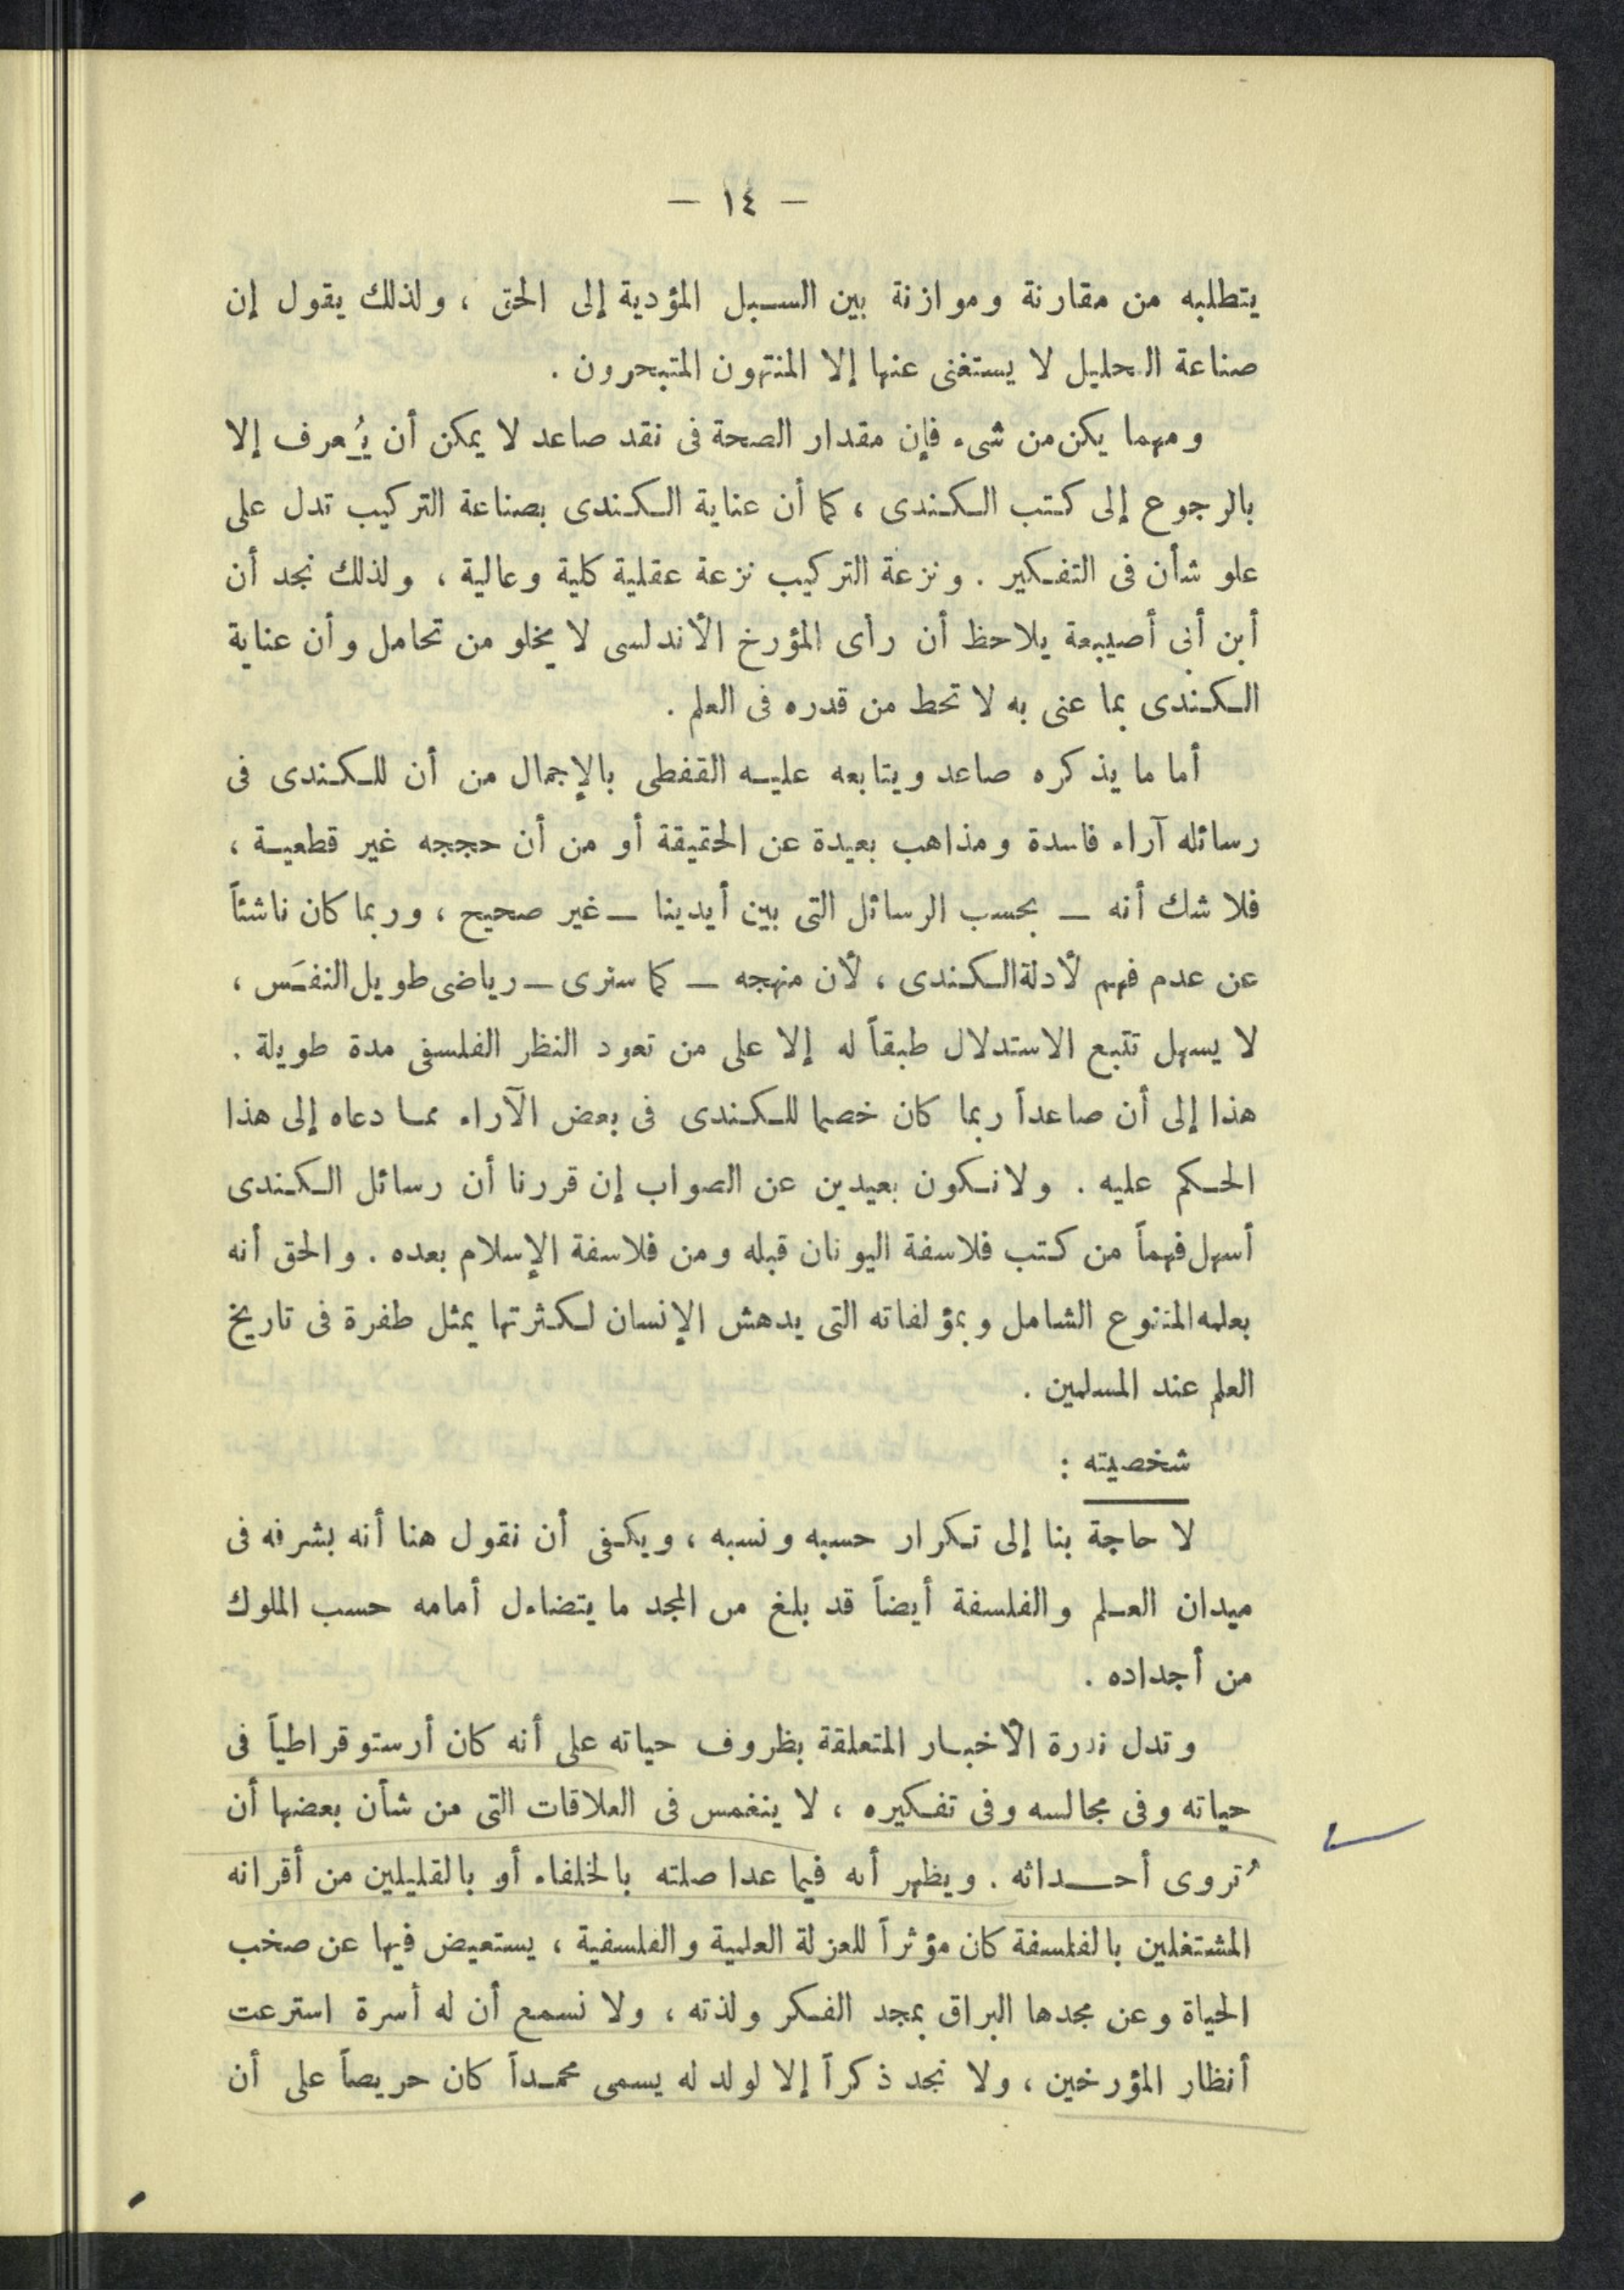 — ١٤ —
يتطلبه من مقارنة وموازنة بين السبل المؤدية إلى الحق ، ولذلك يقول إن
صناعة التحليل لا يستغنى عنها إلا المنتهون المتبحرون .
ومهما يكن من شىء فإن مقدار الصحة فى نقد صاعد لا يمكن أن يُعرف إلا
بالرجوع إلى كتب الكندى ، كما أن عناية الكندى بصناعة التركيب تدل على
علو شأن فى التفكير . ونزعة التركيب نزعة عقلية كلية وعالية ، ولذلك نجد أن
أبن أبى أصيبعة يلاحظ أن رأى المؤرخ الأندلسى لا يخلو من تحامل وأن عناية
الكندى بما عنى به لا تحط من قدره فى العلم .
أما ما يذكره صاعد ويتابعه عليه القفطى بالإجمال من أن للكندى فى
رسائله آراء فاسدة ومذاهب بعيدة عن الحقيقة أو من أن حججه غير قطعية ،
فلا شك أنه — بحسب الرسائل التى بين أيدينا — غير صحيح ، وربما كان ناشئاً
عن عدم فهم لأدلة الكندى ، لأن منهجه — كما سنرى — رياضى طويل النفَس ،
لا يسهل تتبع الاستدلال طبقاً له إلا على من تعود النظر الفلسفى مدة طويلة .
هذا إلى أن صاعداً ربما كان خصما للكندى فى بعض الآراء مما دعاه إلى هذا
الحكم عليه . ولا نكون بعيدين عن الصواب إن قررنا أن رسائل الكندى
أسهل فهماً من كتب فلاسفة اليونان قبله ومن فلاسفة الإسلام بعده . والحق أنه
بعلمه المتنوع الشامل وبمؤلفاته التى يدهش الإنسان لكثرتها يمثل طفرة فى تاريخ
العلم عند المسلمين .
شخصيته :
لا حاجة بنا إلى تكرار حسبه ونسبه ، ويكفى أن نقول هنا أنه بشرفه فى
ميدان العلم والفلسفة أيضاً قد بلغ من المجد ما يتضاءل أمامه حسب الملوك
من أجداده .
وتدل ندرة الأخبار المتعلقة بظروف حياته على أنه كان أرستوقراطياً فى
حياته وفى مجالسه وفى تفكيره ، لا ينغمس فى العلاقات التى من شأن بعضها أن
تُروى أحداثه . ويظهر أنه فيما عدا صلته بالخلفاء أو بالقليلين من أقرانه
المشتغلين بالفلسفة كان مؤثراً للعزلة العلمية والفلسفية ، يستعيض فيها عن صخب
الحياة وعن مجدها البراق بمجد الفكر ولذته ، ولا نسمع أن له أسرة استرعت
أنظار المؤرخين ، ولا نجد ذكراً إلا لولد له يسمى محمداً كان حريصاً على أن